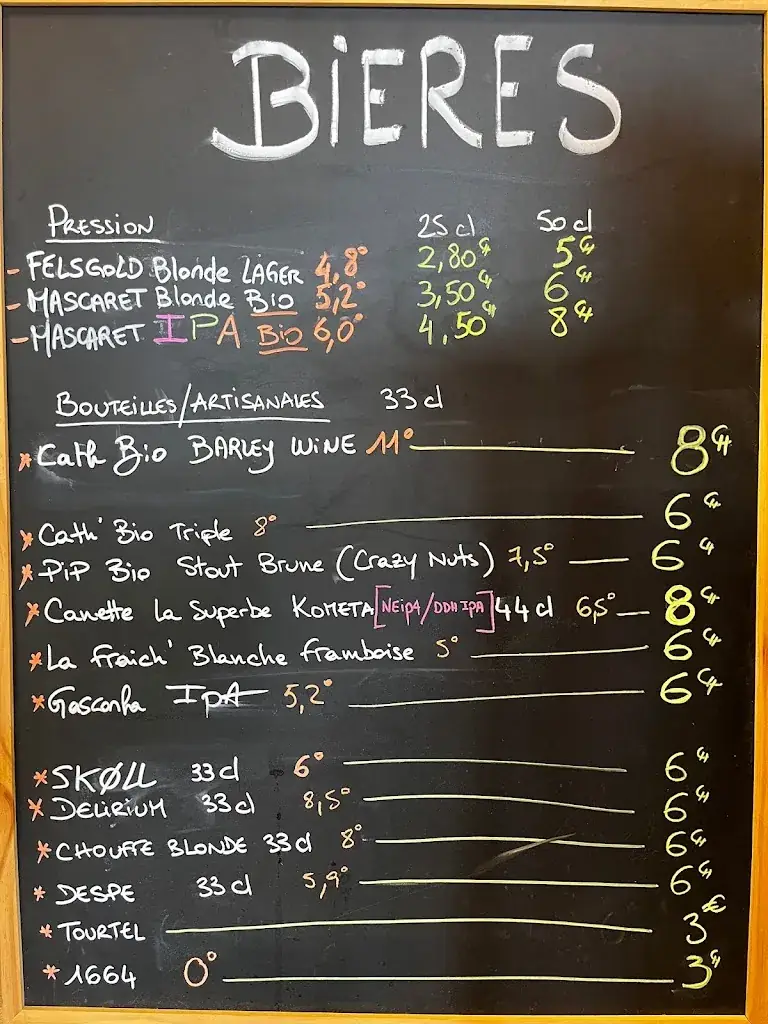 BIERES
PRESSION 25 cl 50 cl
- FELSGOLD Blonde LAGER 4,8° 2,80€ 5€
- MASCARET Blonde Bio 5,2° 3,50€ 6€
- MASCARET IPA Bio 6,0° 4,50€ 8€
BOUTEILLES/ARTISANALES 33 cl
* Cath Bio BARLEY WINE 11° 8€
* Cath' Bio Triple 8° 6€
* PiP Bio Stout Brune (Crazy Nuts) 7,5° 6€
* Canette La Superbe KOMETA [NEiPA/DDH IPA] 44 cl 6,5° 8€
* La Fraich' Blanche framboise 5° 6€
* Gasconha IpA 5,2° 6€
* SKØLL 33 cl 6° 6€
* DELIRIUM 33 cl 8,5° 6€
* CHOUFFE BLONDE 33 cl 8° 6€
* DESPE 33 cl 5,9° 6€
* TOURTEL 3€
* 1664 0° 3€